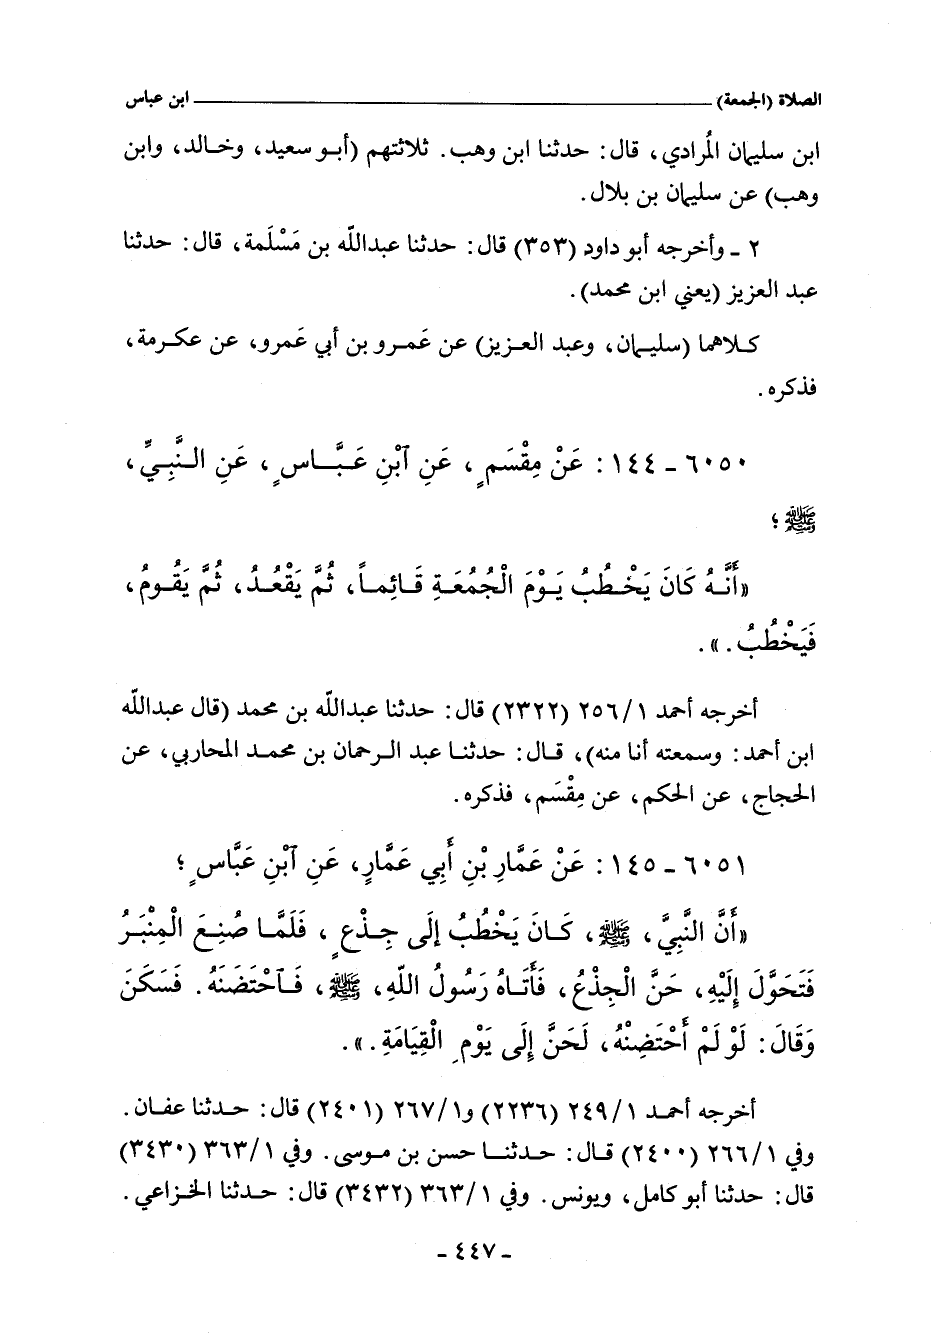 الصلاة (الجمعة) ــــــــــــــــــــ ابن عباس
ابن سليمان المُرادي، قال: حدثنا ابن وهب. ثلاثتهم (أبو سعيد، وخالد، وابن
وهب) عن سليمان بن بلال.
٢ ـ وأخرجه أبو داود (٣٥٣) قال: حدثنا عبدالله بن مَسْلَمة، قال: حدثنا
عبد العزيز (يعني ابن محمد).
كلاهما (سليمان، وعبد العزيز) عن عَمرو بن أبي عَمرو، عن عكرمة،
فذكره.
٦٠٥٠ ـ ١٤٤: عَنْ مِقْسَمٍ، عَنِ ٱبْنِ عَبَّاسٍ، عَنِ النَّبِيِّ،
ﷺ؛
«أَنَّهُ كَانَ يَخْطُبُ يَوْمَ الْجُمُعَةِ قَائِماً، ثُمَّ يَقْعُدُ، ثُمَّ يَقُومُ،
فَيَخْطُبُ.».
أخرجه أحمد ٢٥٦/١ (٢٣٢٢) قال: حدثنا عبدالله بن محمد (قال عبدالله
ابن أحمد: وسمعته أنا منه)، قال: حدثنا عبد الرحمان بن محمد المحاربي، عن
الحجاج، عن الحكم، عن مِقْسَم، فذكره.
٦٠٥١ ـ ١٤٥: عَنْ عَمَّارِ بْنِ أَبِي عَمَّارٍ، عَنِ ٱبْنِ عَبَّاسٍ؛
«أَنَّ النَّبِيَّ، ﷺ، كَانَ يَخْطُبُ إلَى جِذْعٍ، فَلَمَّا صُنِعَ الْمِنْبَرُ
فَتَحَوَّلَ إِلَيْهِ، حَنَّ الْجِذْعُ، فَأَتَاهُ رَسُولُ اللّهِ، ﷺ، فَٱحْتَضَنَهُ. فَسَكَنَ
وَقَالَ: لَوْ لَمْ أَحْتَضِنْهُ، لَحَنَّ إِلَى يَوْمِ الْقِيَامَةِ.».
أخرجه أحمد ٢٤٩/١ (٢٢٣٦) و٢٦٧/١ (٢٤٠١) قال: حدثنا عفان.
وفي ٢٦٦/١ (٢٤٠٠) قال: حدثنا حسن بن موسى. وفي ٣٦٣/١ (٣٤٣٠)
قال: حدثنا أبو كامل، ويونس. وفي ٣٦٣/١ (٣٤٣٢) قال: حدثنا الخزاعي.
ـ ٤٤٧ ـ